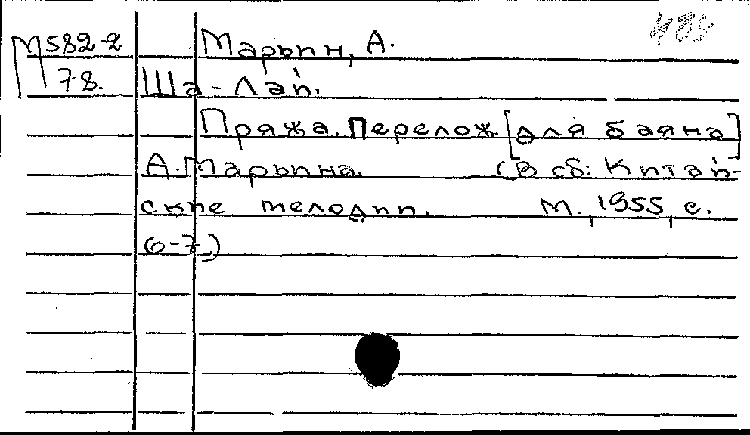 М582-2 Марьин, А.
78. Ша-Лай.
Пряжа. Перелож. [для баяна]
А. Марьина. (В сб: Китай-
ские мелодии. М., 1955, с.
6-7.)